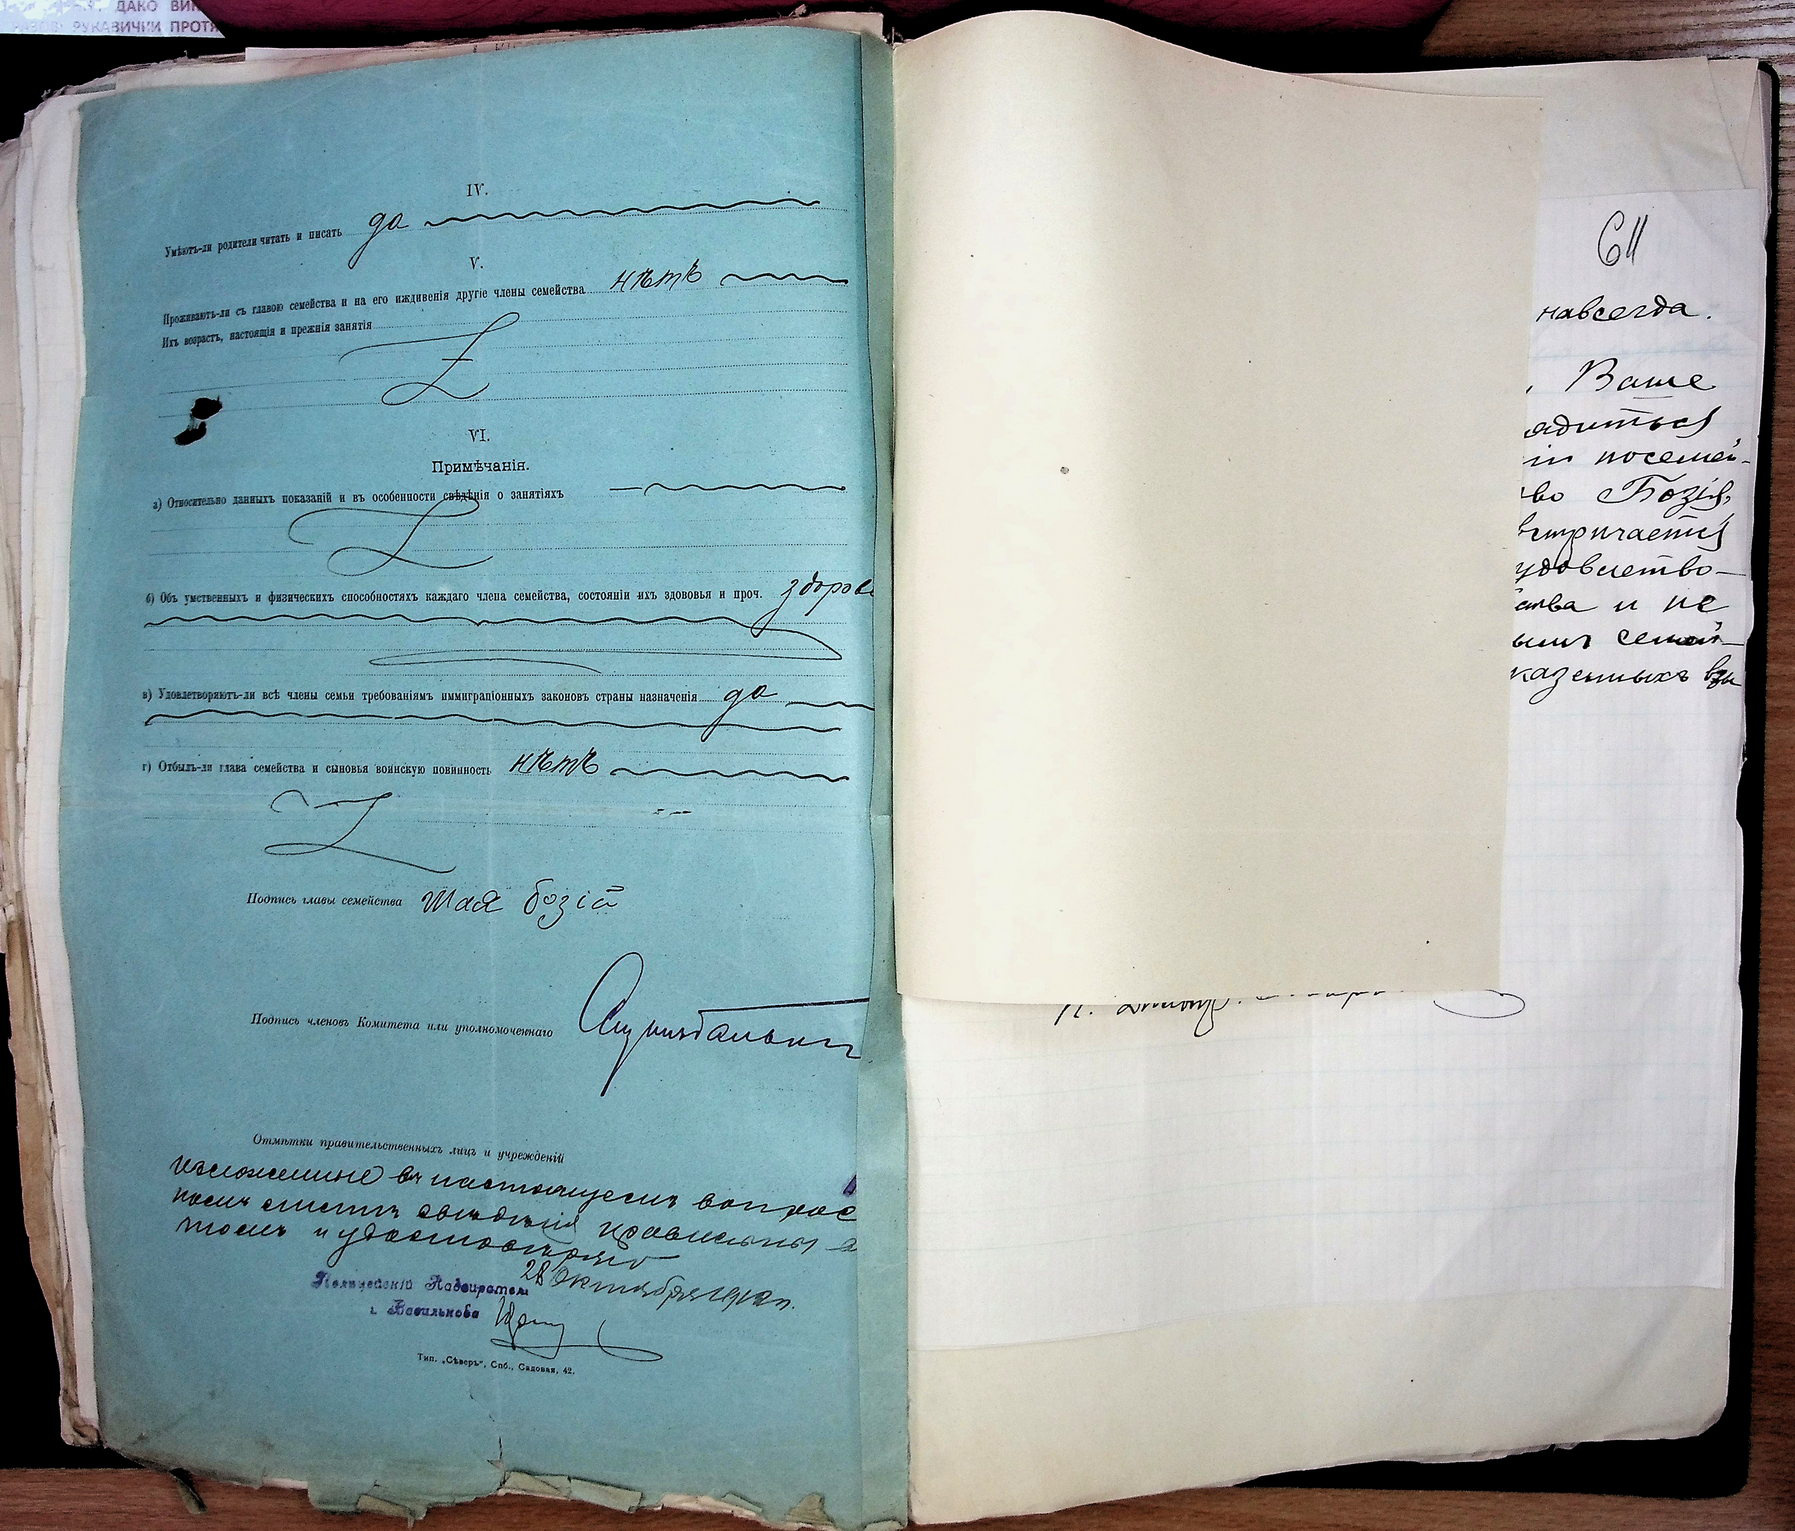 ДАКО ВИК
РУКАВИЧКИ ПРОТЯ
IV.
Умѣютъ-ли родители читать и писать да
V.
Проживаютъ-ли съ главою семейства и на его иждивенія другіе члены семейства нѣтъ
Ихъ возрастъ, настоящія и прежнія занятія
VI.
Примѣчанія.
а) Относительно данныхъ показаній и въ особенности свѣдѣнія о занятіяхъ
б) Объ умственныхъ и физическихъ способностяхъ каждаго члена семейства, состояніи ихъ здововья и проч. здоров
в) Удовлетворяютъ-ли всѣ члены семьи требованіямъ иммиграціонныхъ законовъ страны назначенія да
г) Отбылъ-ли глава семейства и сыновья воинскую повинность нѣтъ
Подпись главы семейства Шая Бозій
Подпись членовъ Комитета или уполномоченнаго
Отмѣтки правительственныхъ лицъ и учрежденій
изложенные въ настоящемъ вопрос
номъ листѣ свѣдѣнія правильны въ
томъ и удостовѣряю
28 Октября
Полицейскій Надзиратель
г. Василькова
Тип. „Сѣверъ“, Спб., Садовая, 42.
навсегда.
, Ваше
ядиться
посемей-
во Бозія,
встрѣчается
удовлетво-
ства и не
ымъ семей-
казенныхъ взы